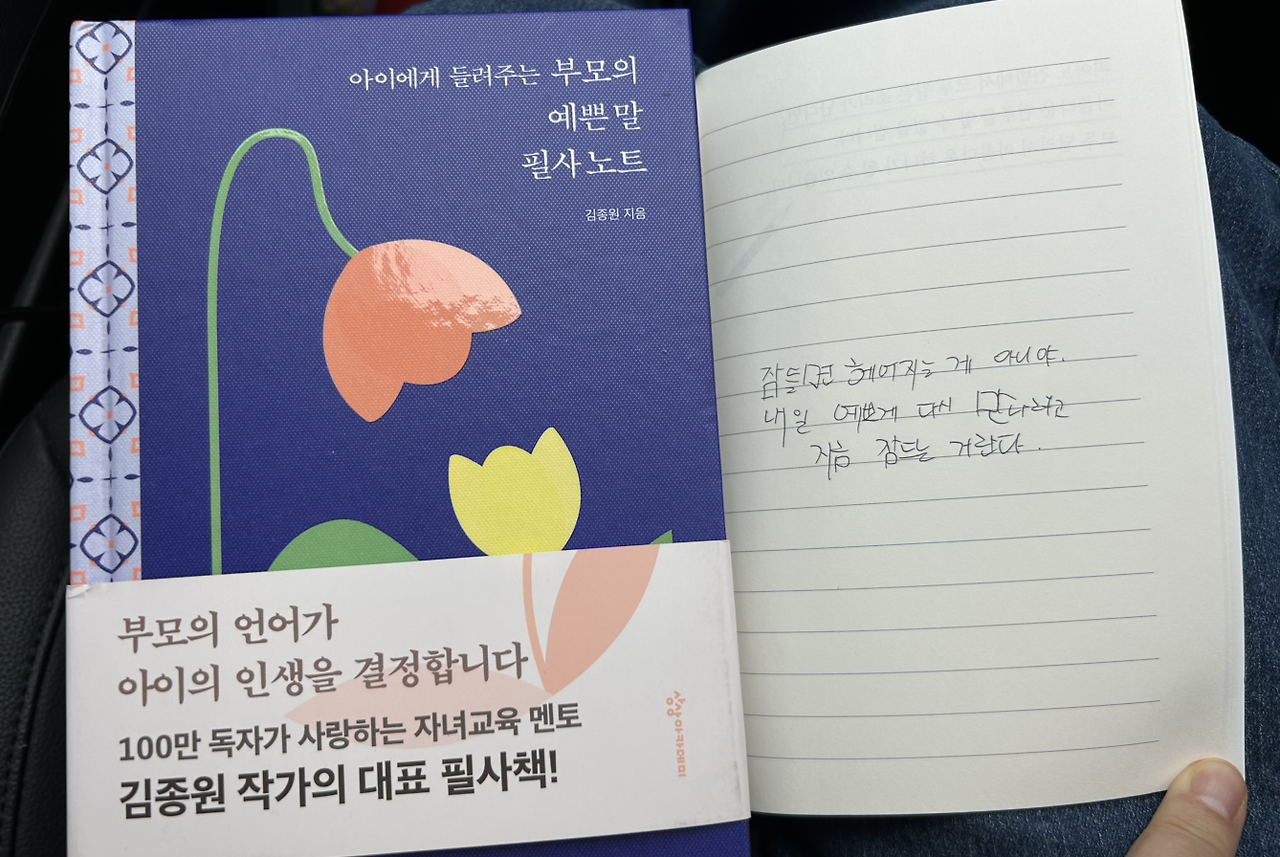 아이에게 들려주는 부모의
예쁜 말
필사 노트
김종원 지음
부모의 언어가
아이의 인생을 결정합니다
100만 독자가 사랑하는 자녀교육 멘토
김종원 작가의 대표 필사책!
상상아카데미
잠들면 헤어지는 게 아니야.
내일 예쁘게 다시 만나려고
지금 잠드는 거란다.